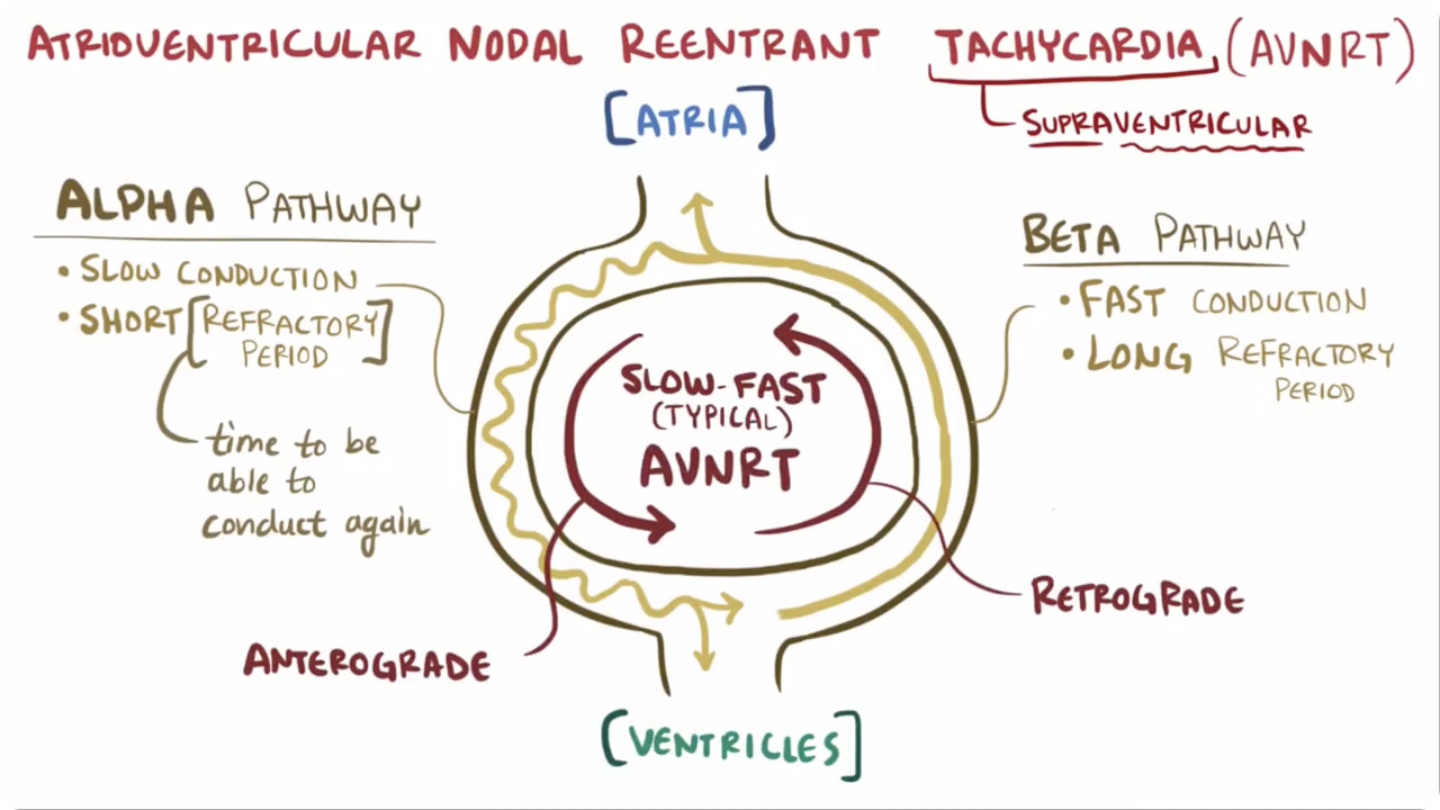 ATRIOVENTRICULAR NODAL REENTRANT TACHYCARDIA (AVNRT)
SUPRAVENTRICULAR
[ATRIA]
ALPHA PATHWAY
• SLOW CONDUCTION
• SHORT [REFRACTORY
PERIOD]
time to be
able to
conduct again
BETA PATHWAY
• FAST CONDUCTION
• LONG REFRACTORY
PERIOD
SLOW-FAST
(TYPICAL)
AVNRT
ANTEROGRADE
RETROGRADE
[VENTRICLES]